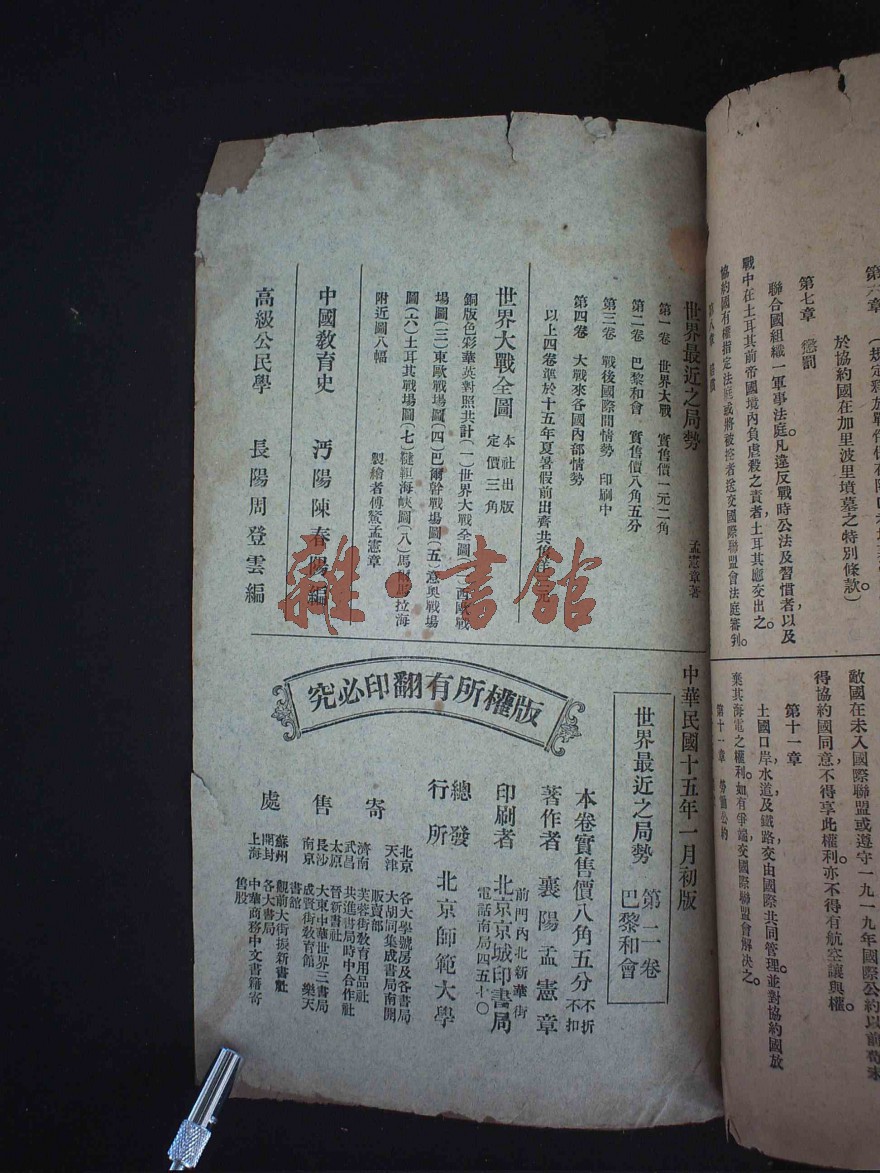 於協約國在加里波里墳墓之特別條款）
第七章　懲罰
聯合國組織一軍事法庭。凡違反戰時公法及習慣者，以及
戰中在土耳其前帝國境內負虐殺之責者，土耳其應交出之。
協約國有權指定法庭或將被控者送交國際聯盟會法庭審判。
敵國在未入國際聯盟或遵守一九一九年國際公約以前苟未
得協約國同意，不得享此權利，亦不得有航空讓與權。
第十一章
土國口岸，水道，及鐵路交由國際共同管理。並對協約國放
棄其海電之權利。如有爭端，交國際聯盟會解決之。
世界最近之局勢　孟憲章著
第一卷　世界大戰　實售價一元二角
第二卷　巴黎和會　實售價八角五分
第三卷　戰後國際間情勢　印刷中
第四卷　大戰來各國內部情勢
以上四卷準於十五年夏暑假前出齊共售洋元
世界大戰全圖　本社出版　定價三角
銅版色彩華英對照共計（一）世界大戰全圖（二）西歐戰
場圖（三）東歐戰場圖（四）巴爾幹戰場圖（五）意奧戰場
圖（六）土耳其戰場圖（七）韃靼海峽圖（八）馬拉海
附近圖八幅　製繪者傅鰲孟憲章
中國教育史　沔陽陳春陽編
高級公民學　長陽周登雲編
中華民國十五年一月初版
世界最近之局勢　第二卷　巴黎和會
版權所有翻印必究
本卷實售價八角五分　不折不扣
著作者　襄陽孟憲章
印刷者　北京京城印書局
前門內北新華街
電話南局四五十〇
總發行所　北京師範大學
寄售處
北京　各大學號房及各書局
天津　大胡同集成書局南開販賣部
濟南　芙蓉街教育用品社
武昌　共進書局時中合作社
太原　晉新書社
長沙　大東中華世界三書局
南京　成賢街教育館　樂天書館
蘇州　觀前大街振新書社
開封　各大書局
上海　中華商務中文書籍寄售股
雜·書館